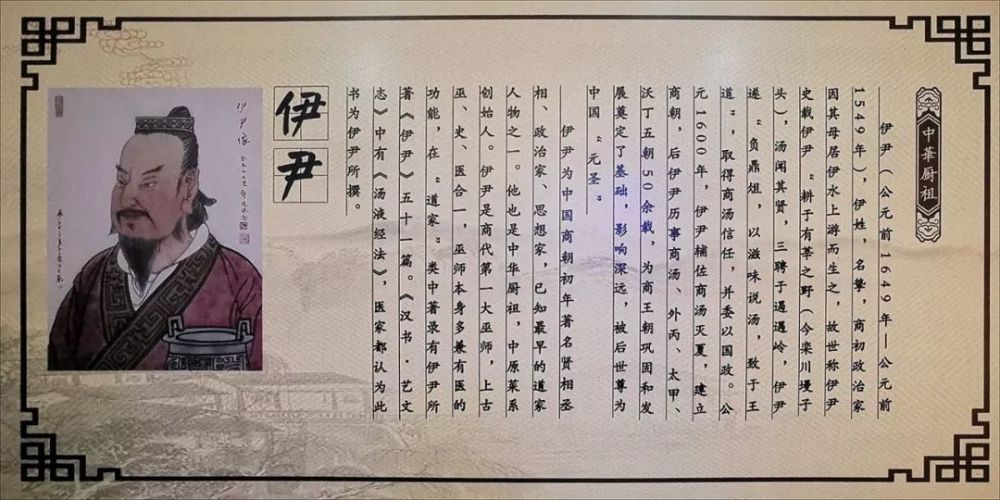 中華厨祖
伊尹（公元前1649年—公元前
1549年），伊姓，名挚，商初政治家
因其母居伊水上游而生之，故世称伊尹
史载伊尹“耕于有莘之野（今栾川墁子
头），汤闻其贤，三聘于遇遇岭，伊尹
遂“负鼎俎，以滋味说汤，致于王
道”，取得商汤信任，并委以国政。公
元1600年，伊尹辅佐商汤灭夏，建立
商朝，后伊尹历事商汤、外丙、太甲、
沃丁五朝50余载，为商王朝巩固和发
展奠定了基础，影响深远，被后世尊为
中国“元圣”
伊尹为中国商朝初年著名贤相丞
相、政治家、思想家，已知最早的道家
人物之一。他也是中华厨祖，中原菜系
创始人。伊尹是商代第一大巫师，上古
巫、史、医合一，巫师本身多兼有医的
功能，在“道家”类中著录有伊尹所
著《伊尹》五十一篇。《汉书·艺文
志》中有《汤液经法》，医家都认为此
书为伊尹所撰。
伊尹
伊尹像